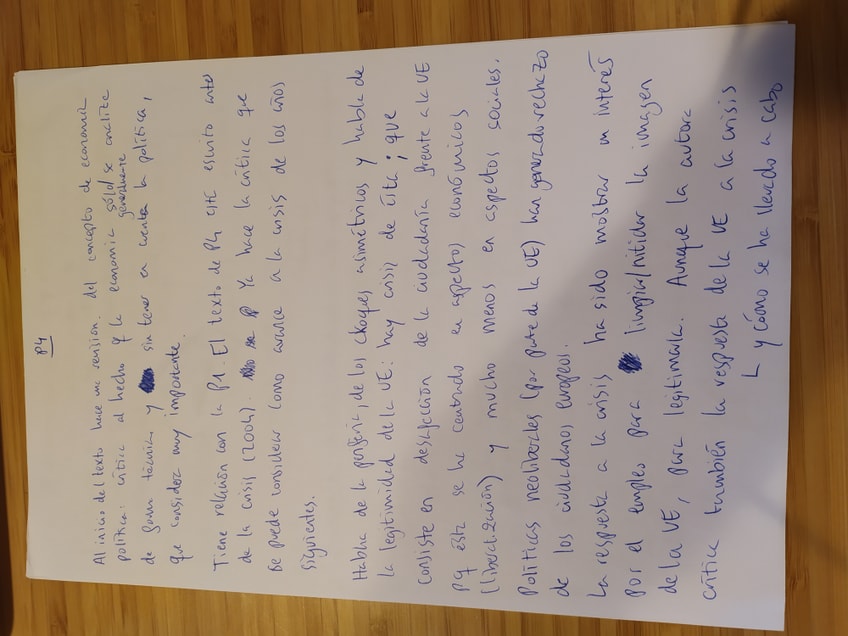 P4
Al inicio del texto hace una revisión del concepto de economía
política: crítica al hecho q la economía sólo/generalmente se analice
de forma técnica y sin tener en cuenta la política,
que considera muy importante.
Tiene relación con la P1. El texto de P4 está escrito antes
de la crisis (2004). Ya hace la crítica que
se puede considerar como avance a la crisis de los años
siguientes.
Habla de la periferia, de los choques asimétricos y habla de
la legitimidad de la UE: hay crisis de ésta; que
consiste en desafección de la ciudadanía frente a la UE
pq ésta se ha centrado en aspectos económicos
(liberalización) y mucho menos en aspectos sociales.
Políticas neoliberales (por parte de la UE) han generado rechazo
de los ciudadanos europeos.
La respuesta a la crisis ha sido mostrar un interés
por el empleo para limpiar/nitidar la imagen
de la UE, para legitimarla. Aunque la autora
critica también la respuesta de la UE a la crisis
y cómo se ha llevado a cabo